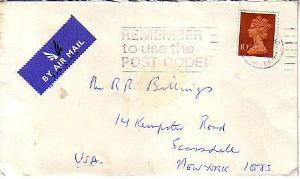 REMEMBER
to use the
POST CODE!
10P
BY AIR MAIL
Mr R R Billings
14 Kempster Road
Scarsdale
NEW YORK 10583
U.S.A.